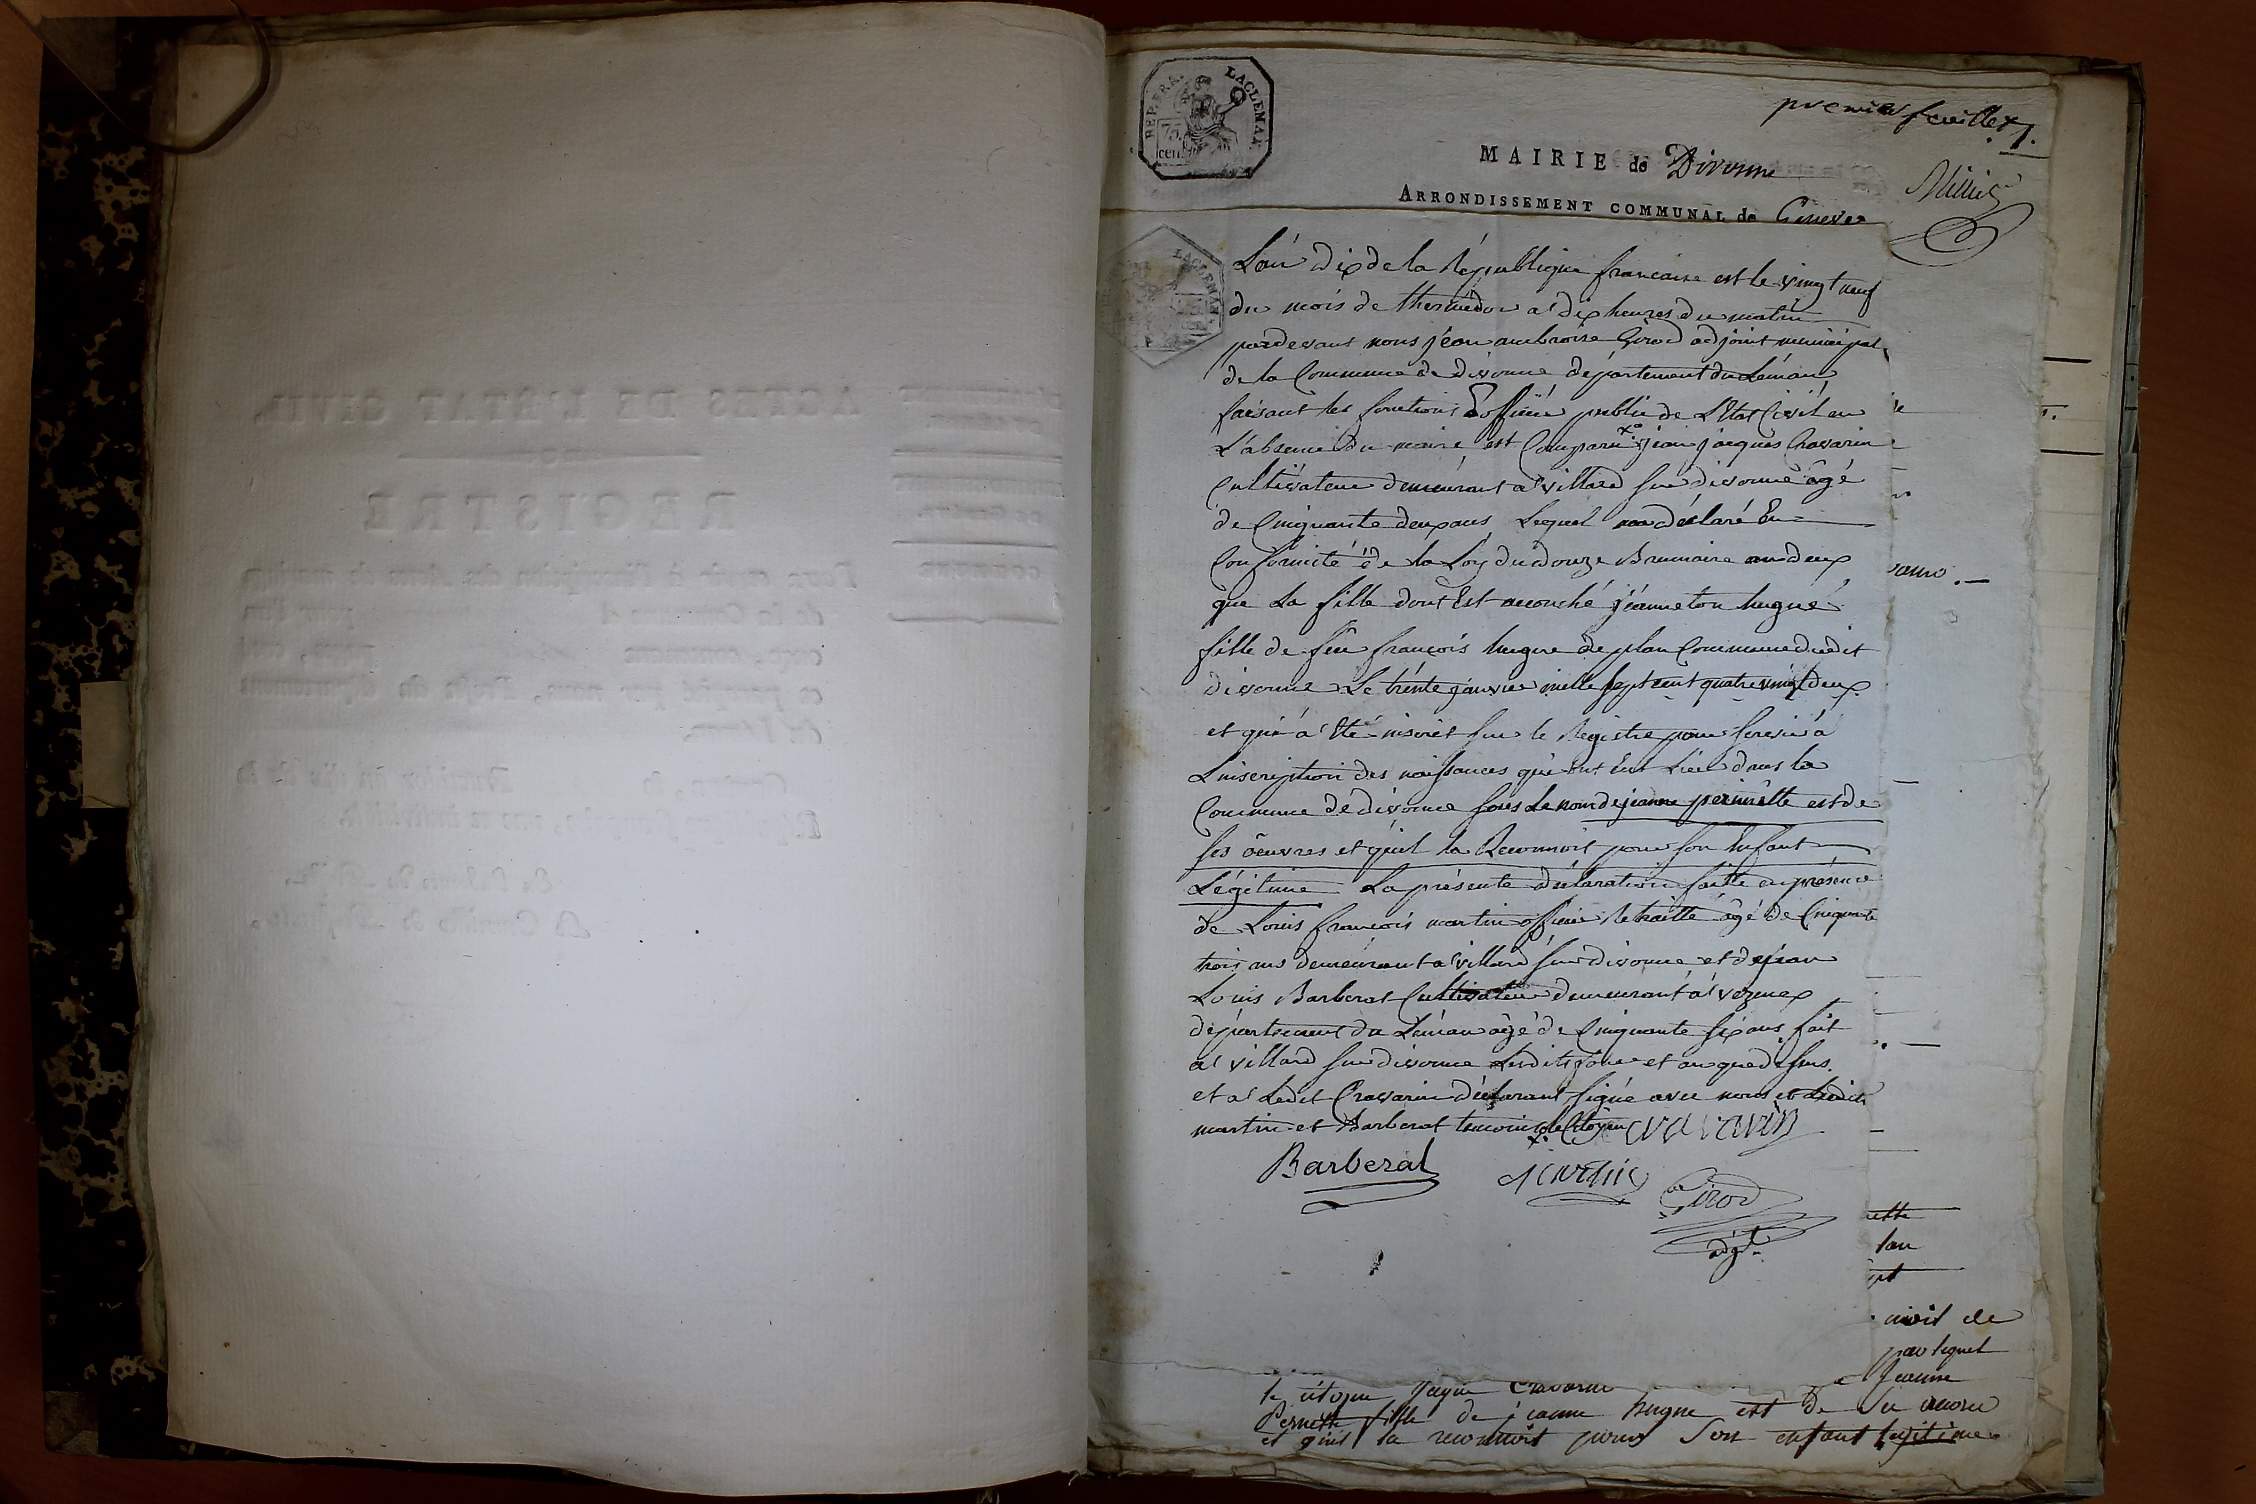 premier feuillet 1.
REP. FRA.
LACLEMAN
75.
cen.
MAIRIE de Divonne
Millet
ARRONDISSEMENT COMMUNAL de Geneve
L'an dix de la République francaise est le vingt neuf
du mois de thermidor a dix heures du matin
pardevant nous jéan ambroise Girod adjoint municipal
de la Commune de divonne département du Léman
faisant les fonctions d'officier public de L'Etat Civil en
L'absence du maire, est Comparu jéan jacques Cravarin
Cultivateur demeurant a villard sur divonne âgé
de Cinquante deux ans Lequel a déclaré En
Conformité de la Loy du douze Brumaire an deux
que la fille dont Est accouché jéanneton hugue
fille de feu françois hugue de plan Commune dudit
divonne Le trente janvier mille sept cent quatre vingt deux
et qui a Eté inscrit sur le Registre pour servir à
L'inscription des naissances qui ont Eut Lieu dans la
Commune de divonne sous le nom de jeanne pernette est de
ses oeuvres et qu'il la Reconnoit pour son Enfant
Légitime La présente déclaration faitte en présence
de Louis françois martin officier Retraitté âgé de Cinquante
trois ans demeurant a villard sur divonne et de jéan
Louis Barberat Cultivateur demeurant à vezenex
département du Léman âgé de Cinquante six ans, fait
a villard sur divonne Lesdits jour et an que dessus.
et a Ledit Cravarin déclarant signé avec nous et Lesdits
martin et Barberat temoins x. le Citoyen Cravarin
Barberat martin Girod
adjt.
civil de
par lequel
le citoyen Jaques Cravarin Jeanne
Pernette fille de jéanne hugue est de Ses œuvres
et qu'il la reconnoit pour Son enfant legitime